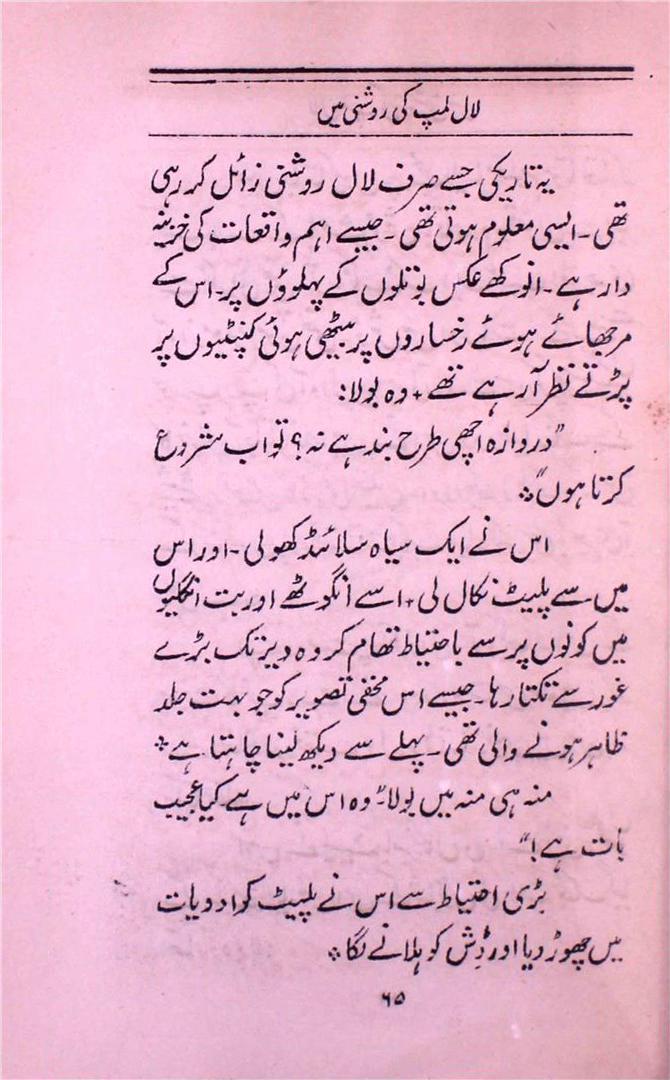 لال لمپ کی روشنی میں
یہ تاریکی جسے صرف لال روشنی زائل کر رہی
تھی۔ ایسی معلوم ہوتی تھی۔ جیسے اہم واقعات کی خزینہ
دار ہے۔ انوکھے عکس بوتلوں کے پہلوؤں پر۔ اس کے
مرجھائے ہوئے رخساروں پر بیٹھی ہوئی کنپٹیوں پر
پڑتے نظر آ رہے تھے ٭ وہ بولا:
"دروازہ اچھی طرح بند ہے نہ؟ تو اب شروع
کرتا ہوں"٭
اس نے ایک سیاہ سلائڈ کھولی۔ اور اس
میں سے پلیٹ نکال لی ٭ اسے انگوٹھے اور بت انگلیوں
میں کونوں پر سے باحتیاط تھام کر وہ دیر تک بڑے
غور سے تکتا رہا۔ جیسے اس مخفی تصویر کو جو بہت جلد
ظاہر ہونے والی تھی۔ پہلے سے دیکھ لینا چاہتا ہے٭
منہ ہی منہ میں بولا "وہ اس میں ہے۔ کیا عجیب
بات ہے!"
بڑی احتیاط سے اس نے پلیٹ کو ادویات
میں چھوڑ دیا اور ڈِش کو ہلانے لگا٭
۶۵